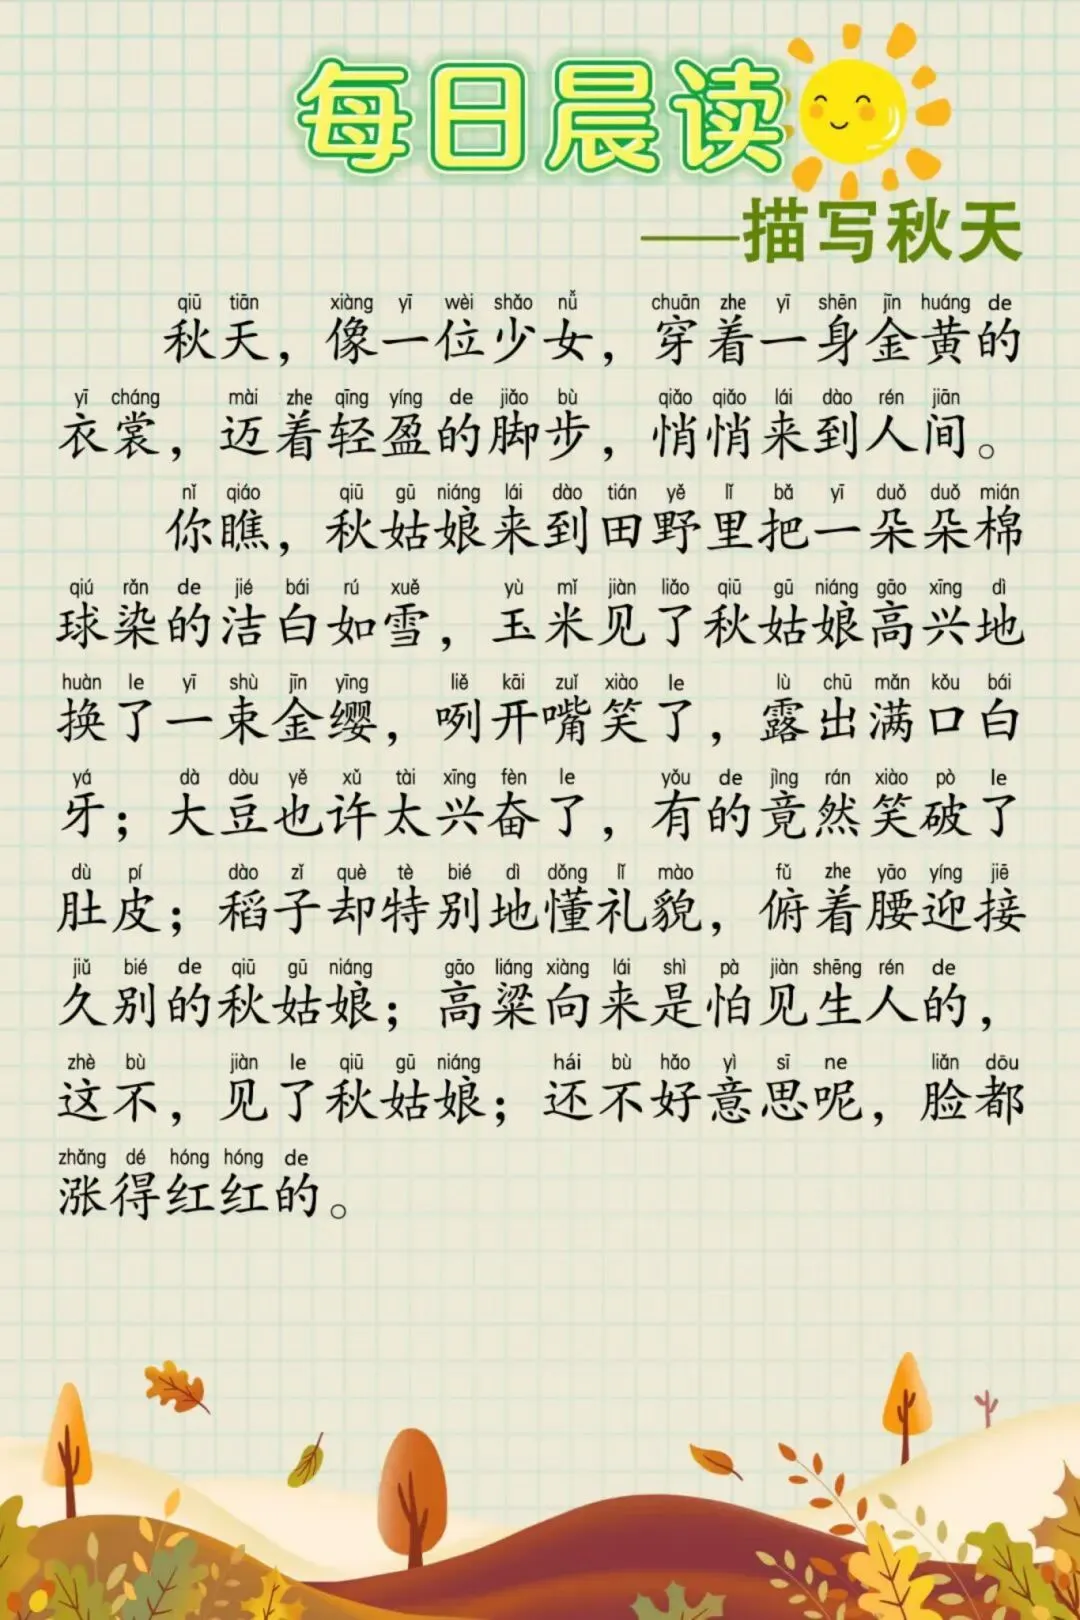 每日晨读
——描写秋天
qiū tiān xiàng yī wèi shǎo nǚ chuān zhe yī shēn jīn huáng de
秋天，像一位少女，穿着一身金黄的
yī cháng mài zhe qīng yíng de jiǎo bù qiǎo qiǎo lái dào rén jiān
衣裳，迈着轻盈的脚步，悄悄来到人间。
nǐ qiáo qiū gū niáng lái dào tián yě lǐ bǎ yī duǒ duǒ mián
你瞧，秋姑娘来到田野里把一朵朵棉
qiú rǎn de jié bái rú xuě yù mǐ jiàn liǎo qiū gū niáng gāo xīng dì
球染的洁白如雪，玉米见了秋姑娘高兴地
huàn le yī shù jīn yīng liě kāi zuǐ xiào le lù chū mǎn kǒu bái
换了一束金缨，咧开嘴笑了，露出满口白
yá dà dòu yě xǔ tài xīng fèn le yǒu de jìng rán xiào pò le
牙；大豆也许太兴奋了，有的竟然笑破了
dù pí dào zǐ què tè bié dì dǒng lǐ mào fǔ zhe yāo yíng jiē
肚皮；稻子却特别地懂礼貌，俯着腰迎接
jiǔ bié de qiū gū niáng gāo liáng xiàng lái shì pà jiàn shēng rén de
久别的秋姑娘；高粱向来是怕见生人的，
zhè bù jiàn le qiū gū niáng hái bù hǎo yì sī ne liǎn dōu
这不，见了秋姑娘；还不好意思呢，脸都
zhǎng dé hóng hóng de
涨得红红的。